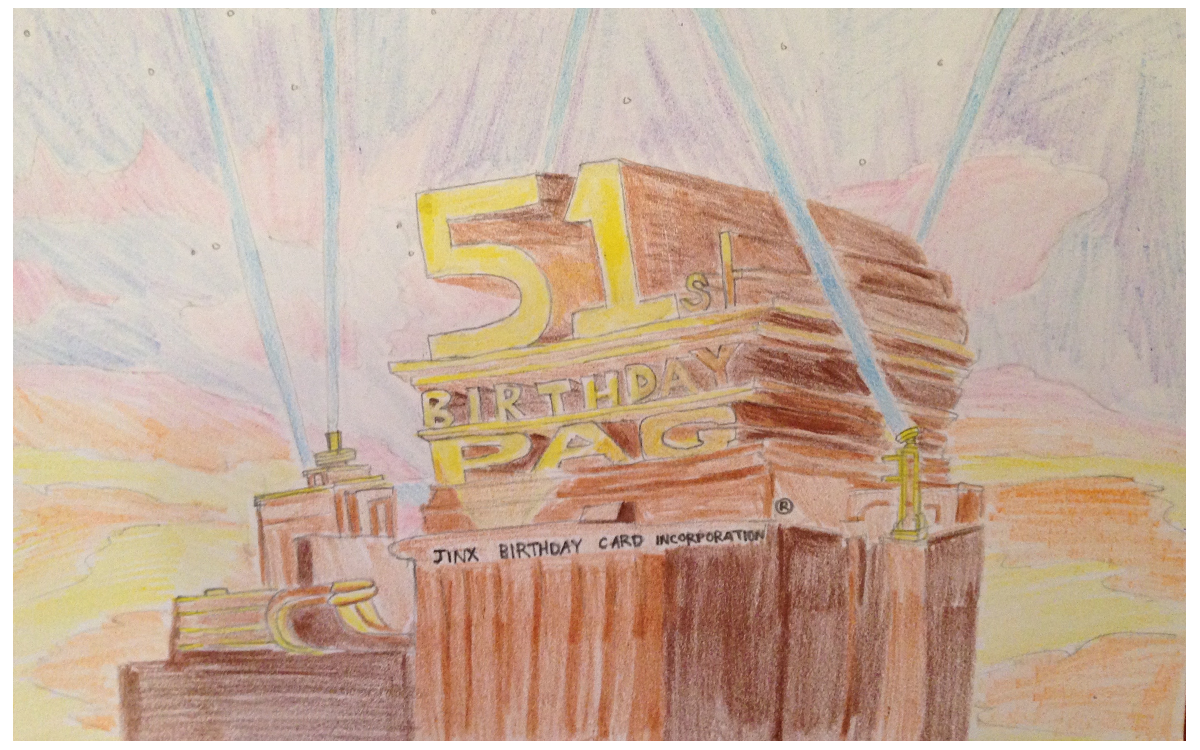 51st
BIRTHDAY
PAG
®
JINX BIRTHDAY CARD INCORPORATION